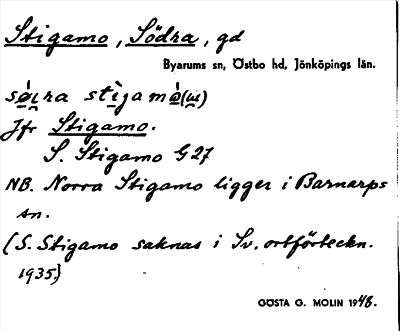 Stigamo, Södra, gd
Byarums sn, Östbo hd, Jönköpings län.
stigamo
Jfr Stigamo.
S. Stigamo G 27
NB. Norra Stigamo ligger i Barnarps
sn.
(S. Stigamo saknas i Sv. ortförteckn.
1935.)
GÖSTA G. MOLIN 1948.